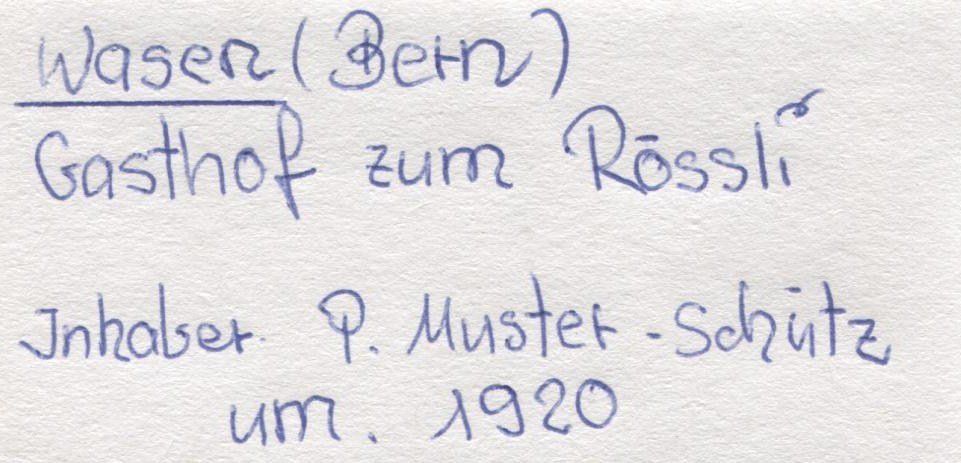 Wasen (Bern)
Gasthof zum Rössli
Inhaber. P. Muster-Schütz
um. 1920